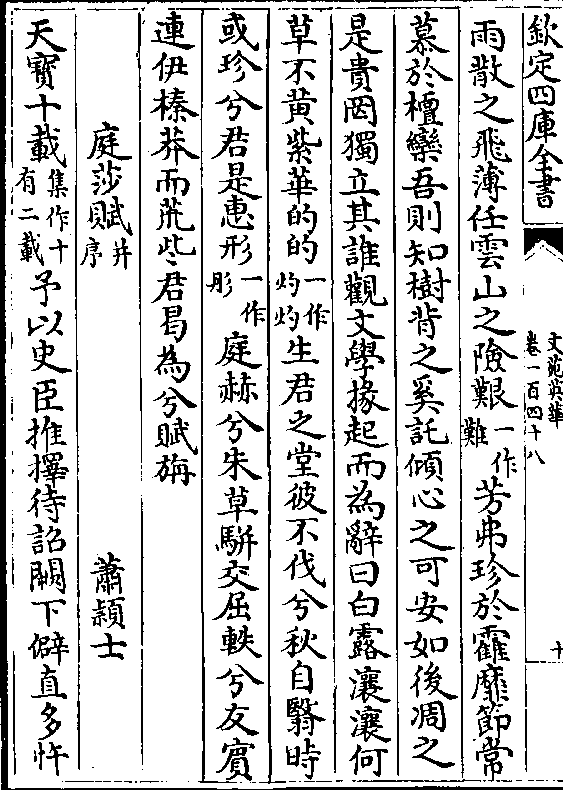 欽定四庫全書
文苑英華
卷一百四十八
十
雨散之飛薄任雲山之險艱一作難芳弗珍於霍靡節常
慕於檀欒吾則知樹背之奚託傾心之可安如後凋之
是貴罔獨立其誰觀文學掾起而為辭曰白露瀼瀼何
草不黃紫華的的一作灼灼生君之堂彼不伐兮秋自翳時
或珍兮君是惠形一作彤庭赫兮朱草駢交屈軼兮友賓
連伊榛莽而荒些君曷為兮賦旃
庭莎賦并序
蕭穎士
天寶十載集作十有二載予以史臣推擇待詔闕下僻直多忤